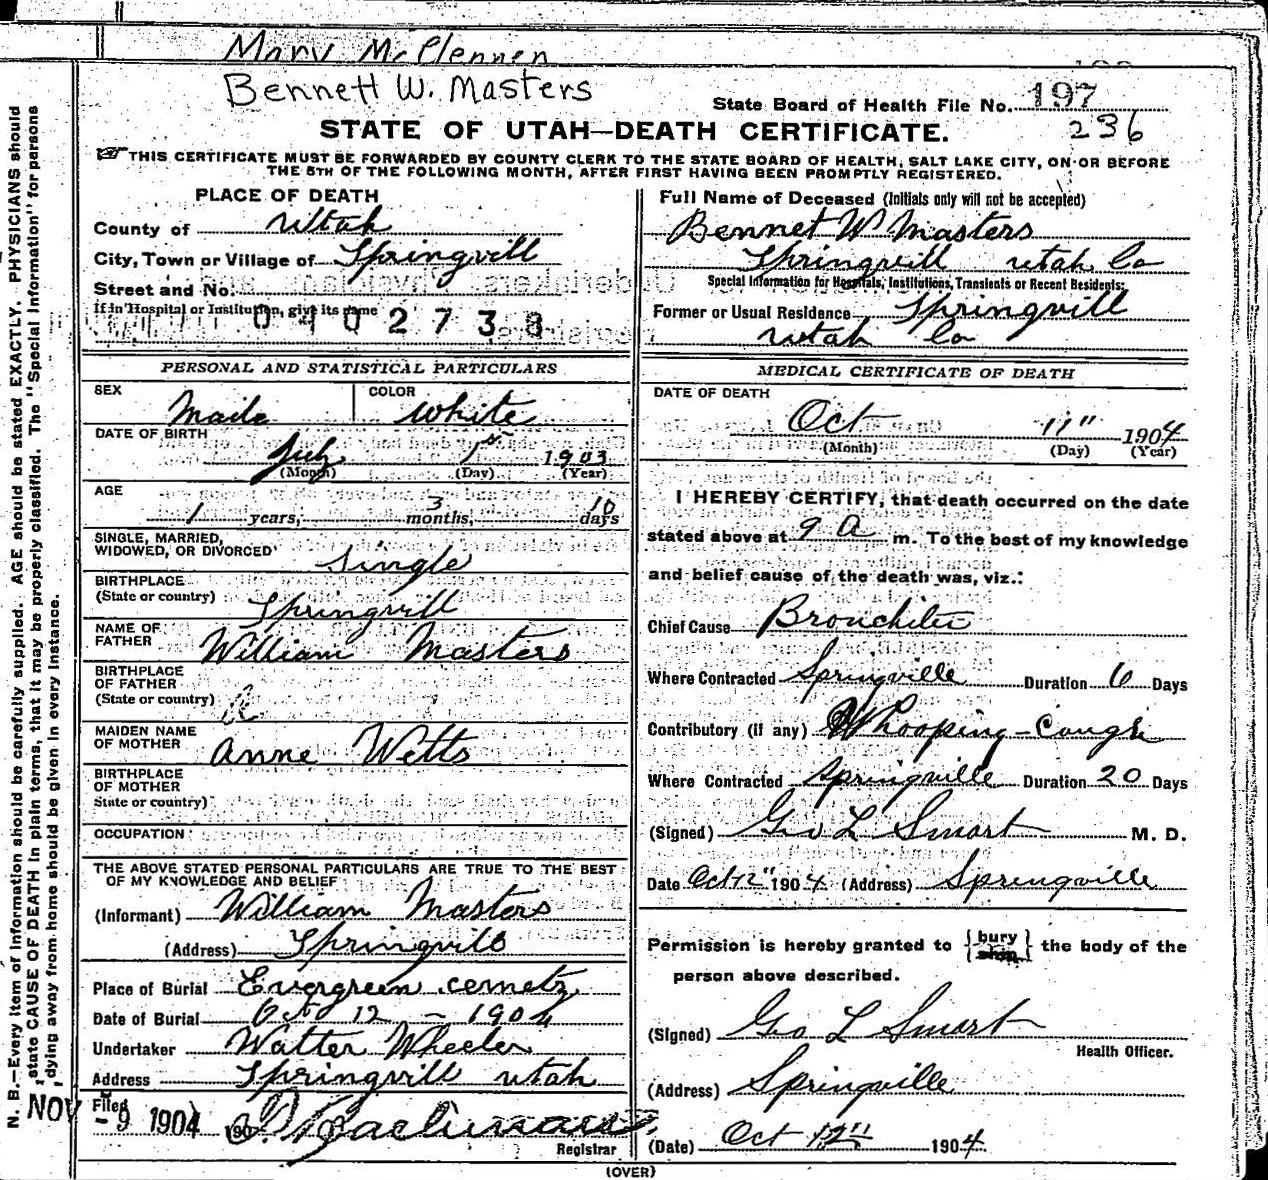 Mary McClennen
Bennett W. Masters
State Board of Health File No. 197
236
STATE OF UTAH—DEATH CERTIFICATE.
THIS CERTIFICATE MUST BE FORWARDED BY COUNTY CLERK TO THE STATE BOARD OF HEALTH, SALT LAKE CITY, ON OR BEFORE
THE 5TH OF THE FOLLOWING MONTH, AFTER FIRST HAVING BEEN PROMPTLY REGISTERED.
PLACE OF DEATH
County of Utah
City, Town or Village of Springvill
Street and No.
If in Hospital or Institution, give its name
0402738
Full Name of Deceased (Initials only will not be accepted)
Bennet W Masters
Springvill Utah Co
Special Information for Hospitals, Institutions, Transients or Recent Residents:
Former or Usual Residence Springvill
Utah Co
PERSONAL AND STATISTICAL PARTICULARS
SEX Maile COLOR White
DATE OF BIRTH
July 1st 1903
(Month) (Day) (Year)
AGE
1 years, 3 months, 10 days
SINGLE, MARRIED,
WIDOWED, OR DIVORCED Single
BIRTHPLACE
(State or country) Springvill
NAME OF
FATHER William Masters
BIRTHPLACE
OF FATHER
(State or country)
MAIDEN NAME
OF MOTHER Anne Wetts
BIRTHPLACE
OF MOTHER
State or country)
OCCUPATION
THE ABOVE STATED PERSONAL PARTICULARS ARE TRUE TO THE BEST
OF MY KNOWLEDGE AND BELIEF
(Informant) William Masters
(Address) Springvill
Place of Burial Evergreen cemetz
Date of Burial Oct 12 - 1904
Undertaker Walter Wheeler
Address Springvill Utah
Filed
NOV - 9 1904 190
Registrar
MEDICAL CERTIFICATE OF DEATH
DATE OF DEATH
Oct 11" 1904
(Month) (Day) (Year)
I HEREBY CERTIFY, that death occurred on the date
stated above at 9 A m. To the best of my knowledge
and belief cause of the death was, viz.:
Chief Cause Bronchitis
Where Contracted Springville Duration 6 Days
Contributory (if any) Whooping-Cough
Where Contracted Springville Duration 20 Days
(Signed) Geo L Smart M. D.
Date Oct 12" 1904 (Address) Springville
Permission is hereby granted to {bury ship} the body of the
person above described.
(Signed) Geo L Smart
Health Officer.
(Address) Springville
(Date) Oct 12" 1904.
(OVER)
N. B.—Every item of information should be carefully supplied. AGE should be stated EXACTLY. PHYSICIANS should
state CAUSE OF DEATH in plain terms, that it may be properly classified. The "Special Information" for persons
dying away from home should be given in every instance.